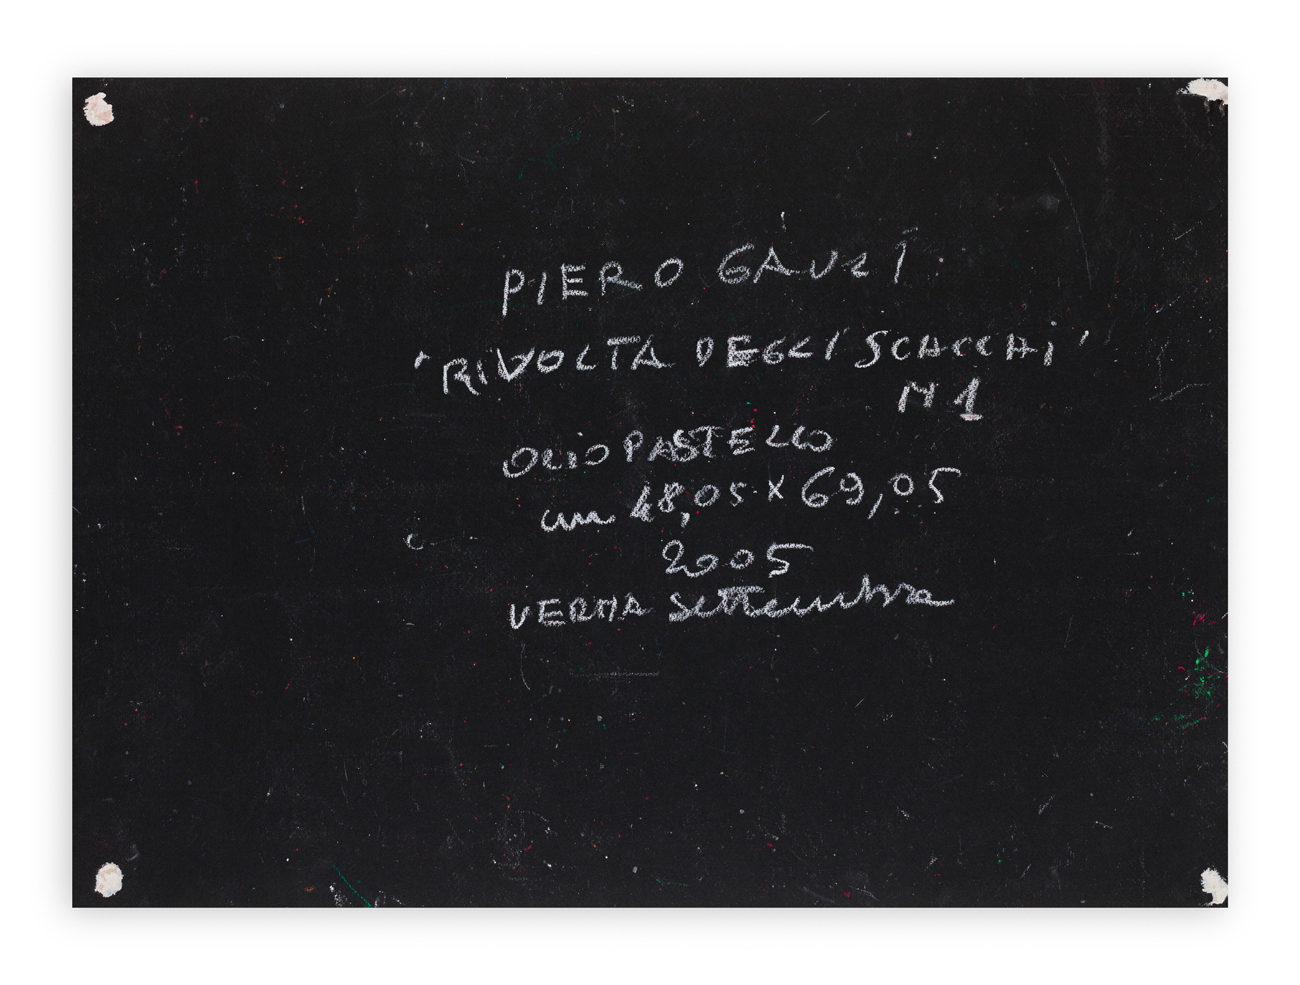 PIERO GAUZI
'RIVOLTA DEGLI SCACCHI'
N 1
OLIO PASTELLO
cm 48,05 x 69,05
2005
VERNA Settembre